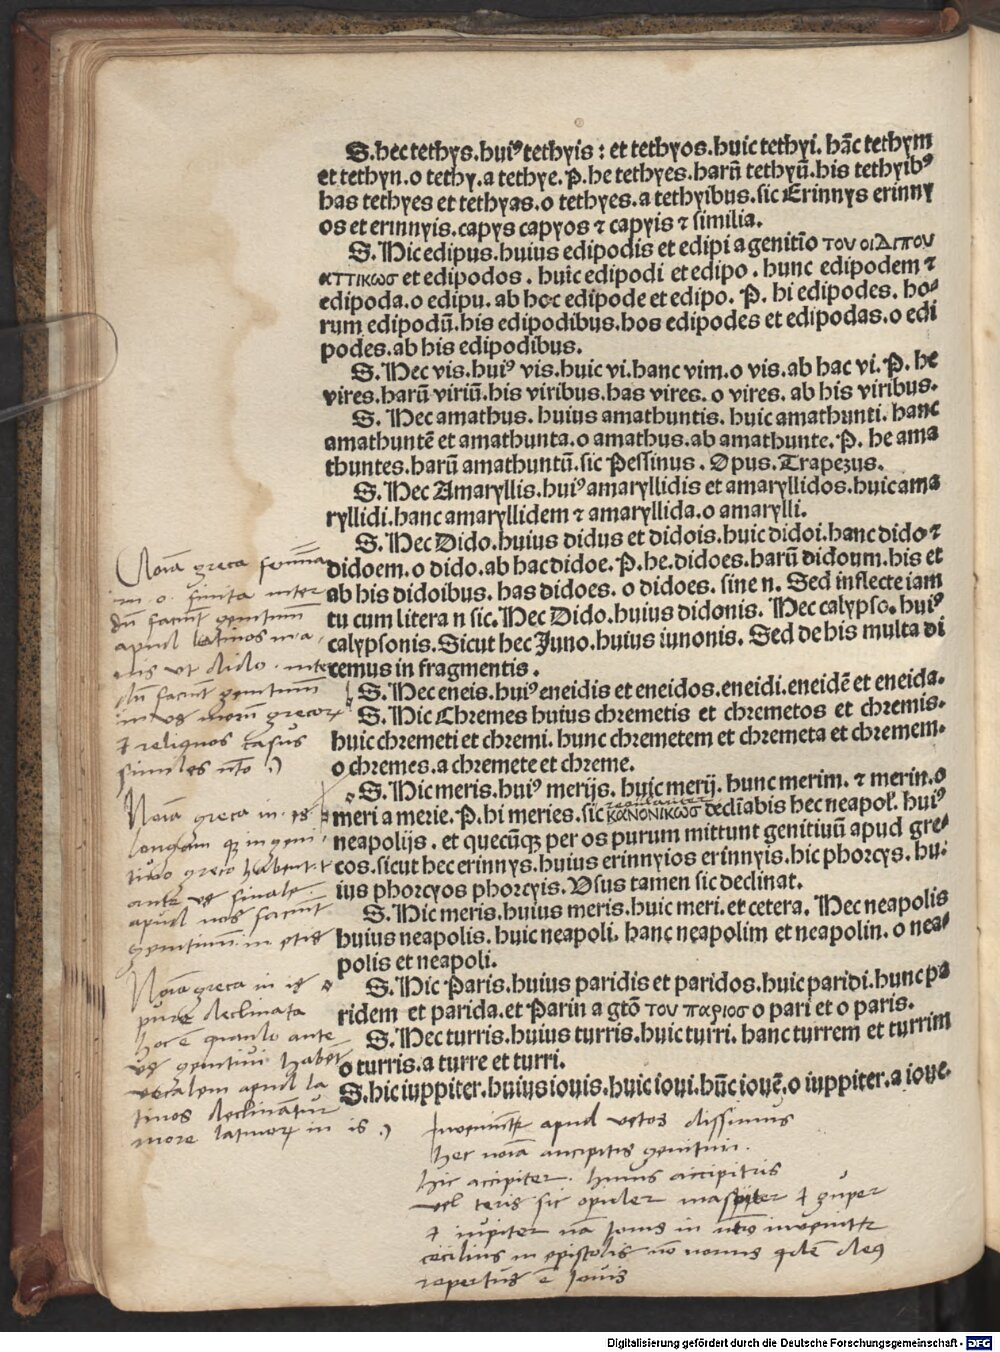 S.hec tethys.huiꝰ tethyis : et tethyos.huic tethyi. hāc tethym
et tethyn.o tethy.a tethye.P.he tethyes.harū tethyū.his tethyibꝰ
has tethyes et tethyas.o tethyes.a tethyibus.sic Erinnys erinny
os et erinnyis.capys capyos ⁊ capyis ⁊ similia.
S.Hic edipus.huius edipodis et edipi a genitīo του οιΔιπου
αττικωσ et edipodos . huic edipodi et edipo . hunc edipodem ⁊
edipoda.o edipu. ab hoc edipode et edipo. P. hi edipodes. ho⸗
rum edipodū.his edipodibus.hos edipodes et edipodas.o edi
podes.ab his edipodibus.
S.Hec vis.huiꝰ vis.huic vi.hanc vim.o vis.ab hac vi.P.he
vires.harū viriū.his viribus.has vires. o vires. ab his viribus.
S. Hec amathus. huius amathuntis. huic amathunti. hanc
amathuntē et amathunta.o amathus.ab amathunte.P. he ama
thuntes.harū amathuntū.sic Pessinus . Opus.Trapezus.
S.Hec Amaryllis.huiꝰ amaryllidis et amaryllidos.huic ama
ryllidi.hanc amaryllidem ⁊ amaryllida.o amarylli.
S.Hec Dido.huius didus et didois.huic didoi.hanc dido ⁊
didoem.o dido.ab hac didoe.P.he.didoes.harū didoum.his et
ab his didoibus. has didoes. o didoes. sine n. Sed inflecte iam
tu cum litera n sic.Hec Dido.huius didonis. Hec calypso. huiꝰ
calypsonis.Sicut hec Juno.huius iunonis. Sed de his multa di
cemus in fragmentis .
S.Hec eneis.huiꝰ eneidis et eneidos.eneidi.eneidē et eneida.
S.Hic Chremes huius chremetis et chremetos et chremis.
huic chremeti et chremi. hunc chremetem et chremeta et chremem.
o chremes.a chremete et chreme.
S.Hic meris.huiꝰ merijs. huic merij. hunc merim. ⁊ merin.o
meri a merie.P.hi meries.sic κανονικωσ decliabis hec neapol. huiꝰ
neapolijs . et quecūqꝫ per os purum mittunt genitiuū apud gre⸗
cos.sicut hec erinnys.huius erinnyios erinnyis.hic phorcys. hu⸗
ius phorcyos phorcyis.Usus tamen sic declinat.
S.Hic meris.huius meris.huic meri.et cetera. Hec neapolis
huius neapolis. huic neapoli. hanc neapolim et neapolin. o nea⸗
polis et neapoli.
S.Hic Paris.huius paridis et paridos.huic paridi.hunc pa
ridem et parida.et Parin a gtō του παριοσ o pari et o paris.
S.Hec turris.huius turris.huic turri. hanc turrem et turrim
o turris.a turre et turri.
S.hic iuppiter.huius iouis.huic ioui.hūc iouē.o iuppiter.a ioue.
Noīa greca
in .o. finita inter
dū faciūt genitiuū
apud latinos
ut dido .
dū faciūt genitiuū
in us grecoꝝ
⁊ reliquos casus
similes
Noīa greca in .is
longam
apud nos faciūt
genitiuū in
Noīa greca in is
pure declinata
hoc ē quando ante
genitiui habēt
vocalem apud la
tinos declinātur
more latinoꝝ in is
apud
hec noīa ancipitis genitiui.
hic accipiter. huius accipitris
vel teris sic maspiter ⁊
⁊ iupiter nā Iouis in
cecilius in epistolis
repertus ē Iouis
Digitalisierung gefördert durch die Deutsche Forschungsgemeinschaft - DFG